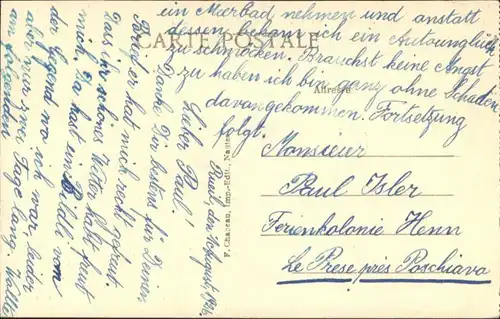 CARTE POSTALE
Adresse
F. Chapeau, Imp.-Edit., Nantes
Lieber Paul!
Danke Dir bestens für Deinen
Brief er hat mich recht gefreut.
Dass ihr schönes Wetter habt freut
mich. Da hast ein Bildli vom
der Gegend wo ich war leider
aber nur zwei Tage lang. Wollte
am folgenden
ein Meerbad nehmen und anstatt
dessen bekam ich ein Autounglück
zu schmöcken. Brauchst keine Angst
zu haben ich bin ganz ohne Schaden
davongekommen. Fortsetzung
folgt.
Monsieur
Paul Isler
Ferienkolonie Henn
Le Prese près Poschiavo